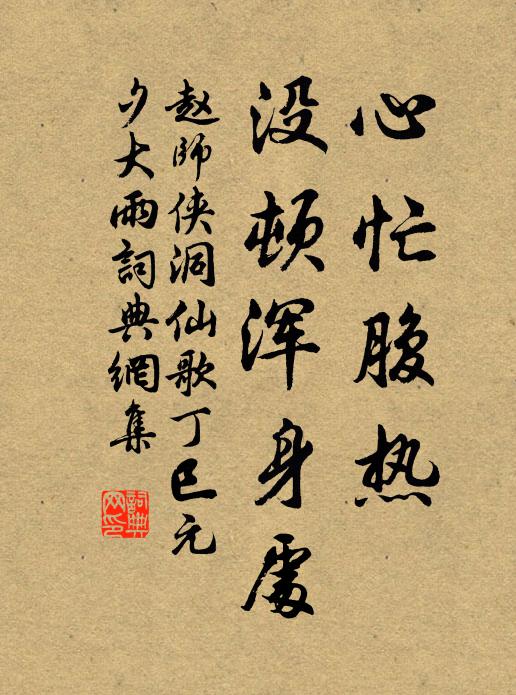 心忙腹热
没顿浑身處
赵师侠洞仙歌丁巳元
夕大雨詞典網集
詞典网印